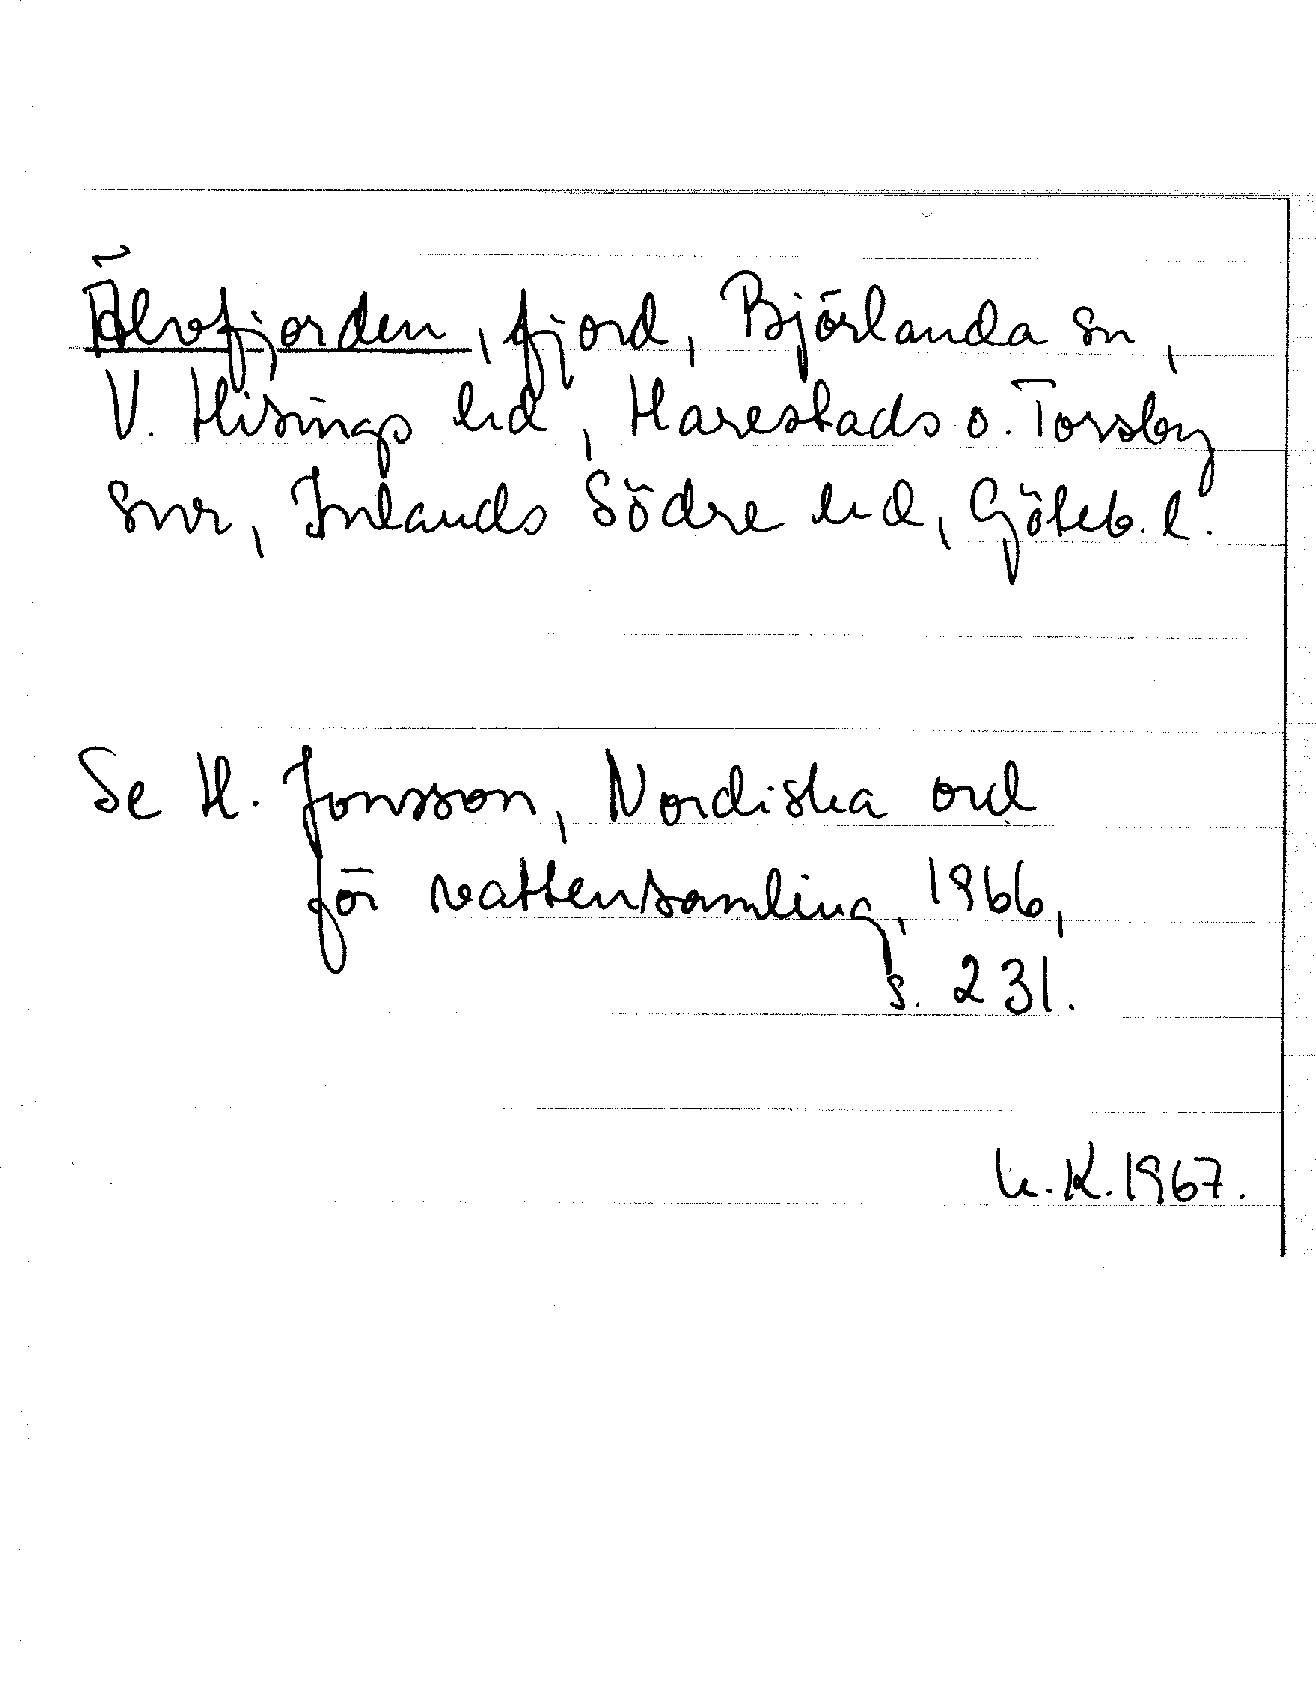 Älvefjorden, fjord, Björlanda sn,
V. Hisings hd, Harestads o. Torsby
snr, Inlands Södre hd, Göteb. l.
Se H. Jonsson, Nordiska ord
för vattensamling, 1966,
s. 231.
K. 1967.